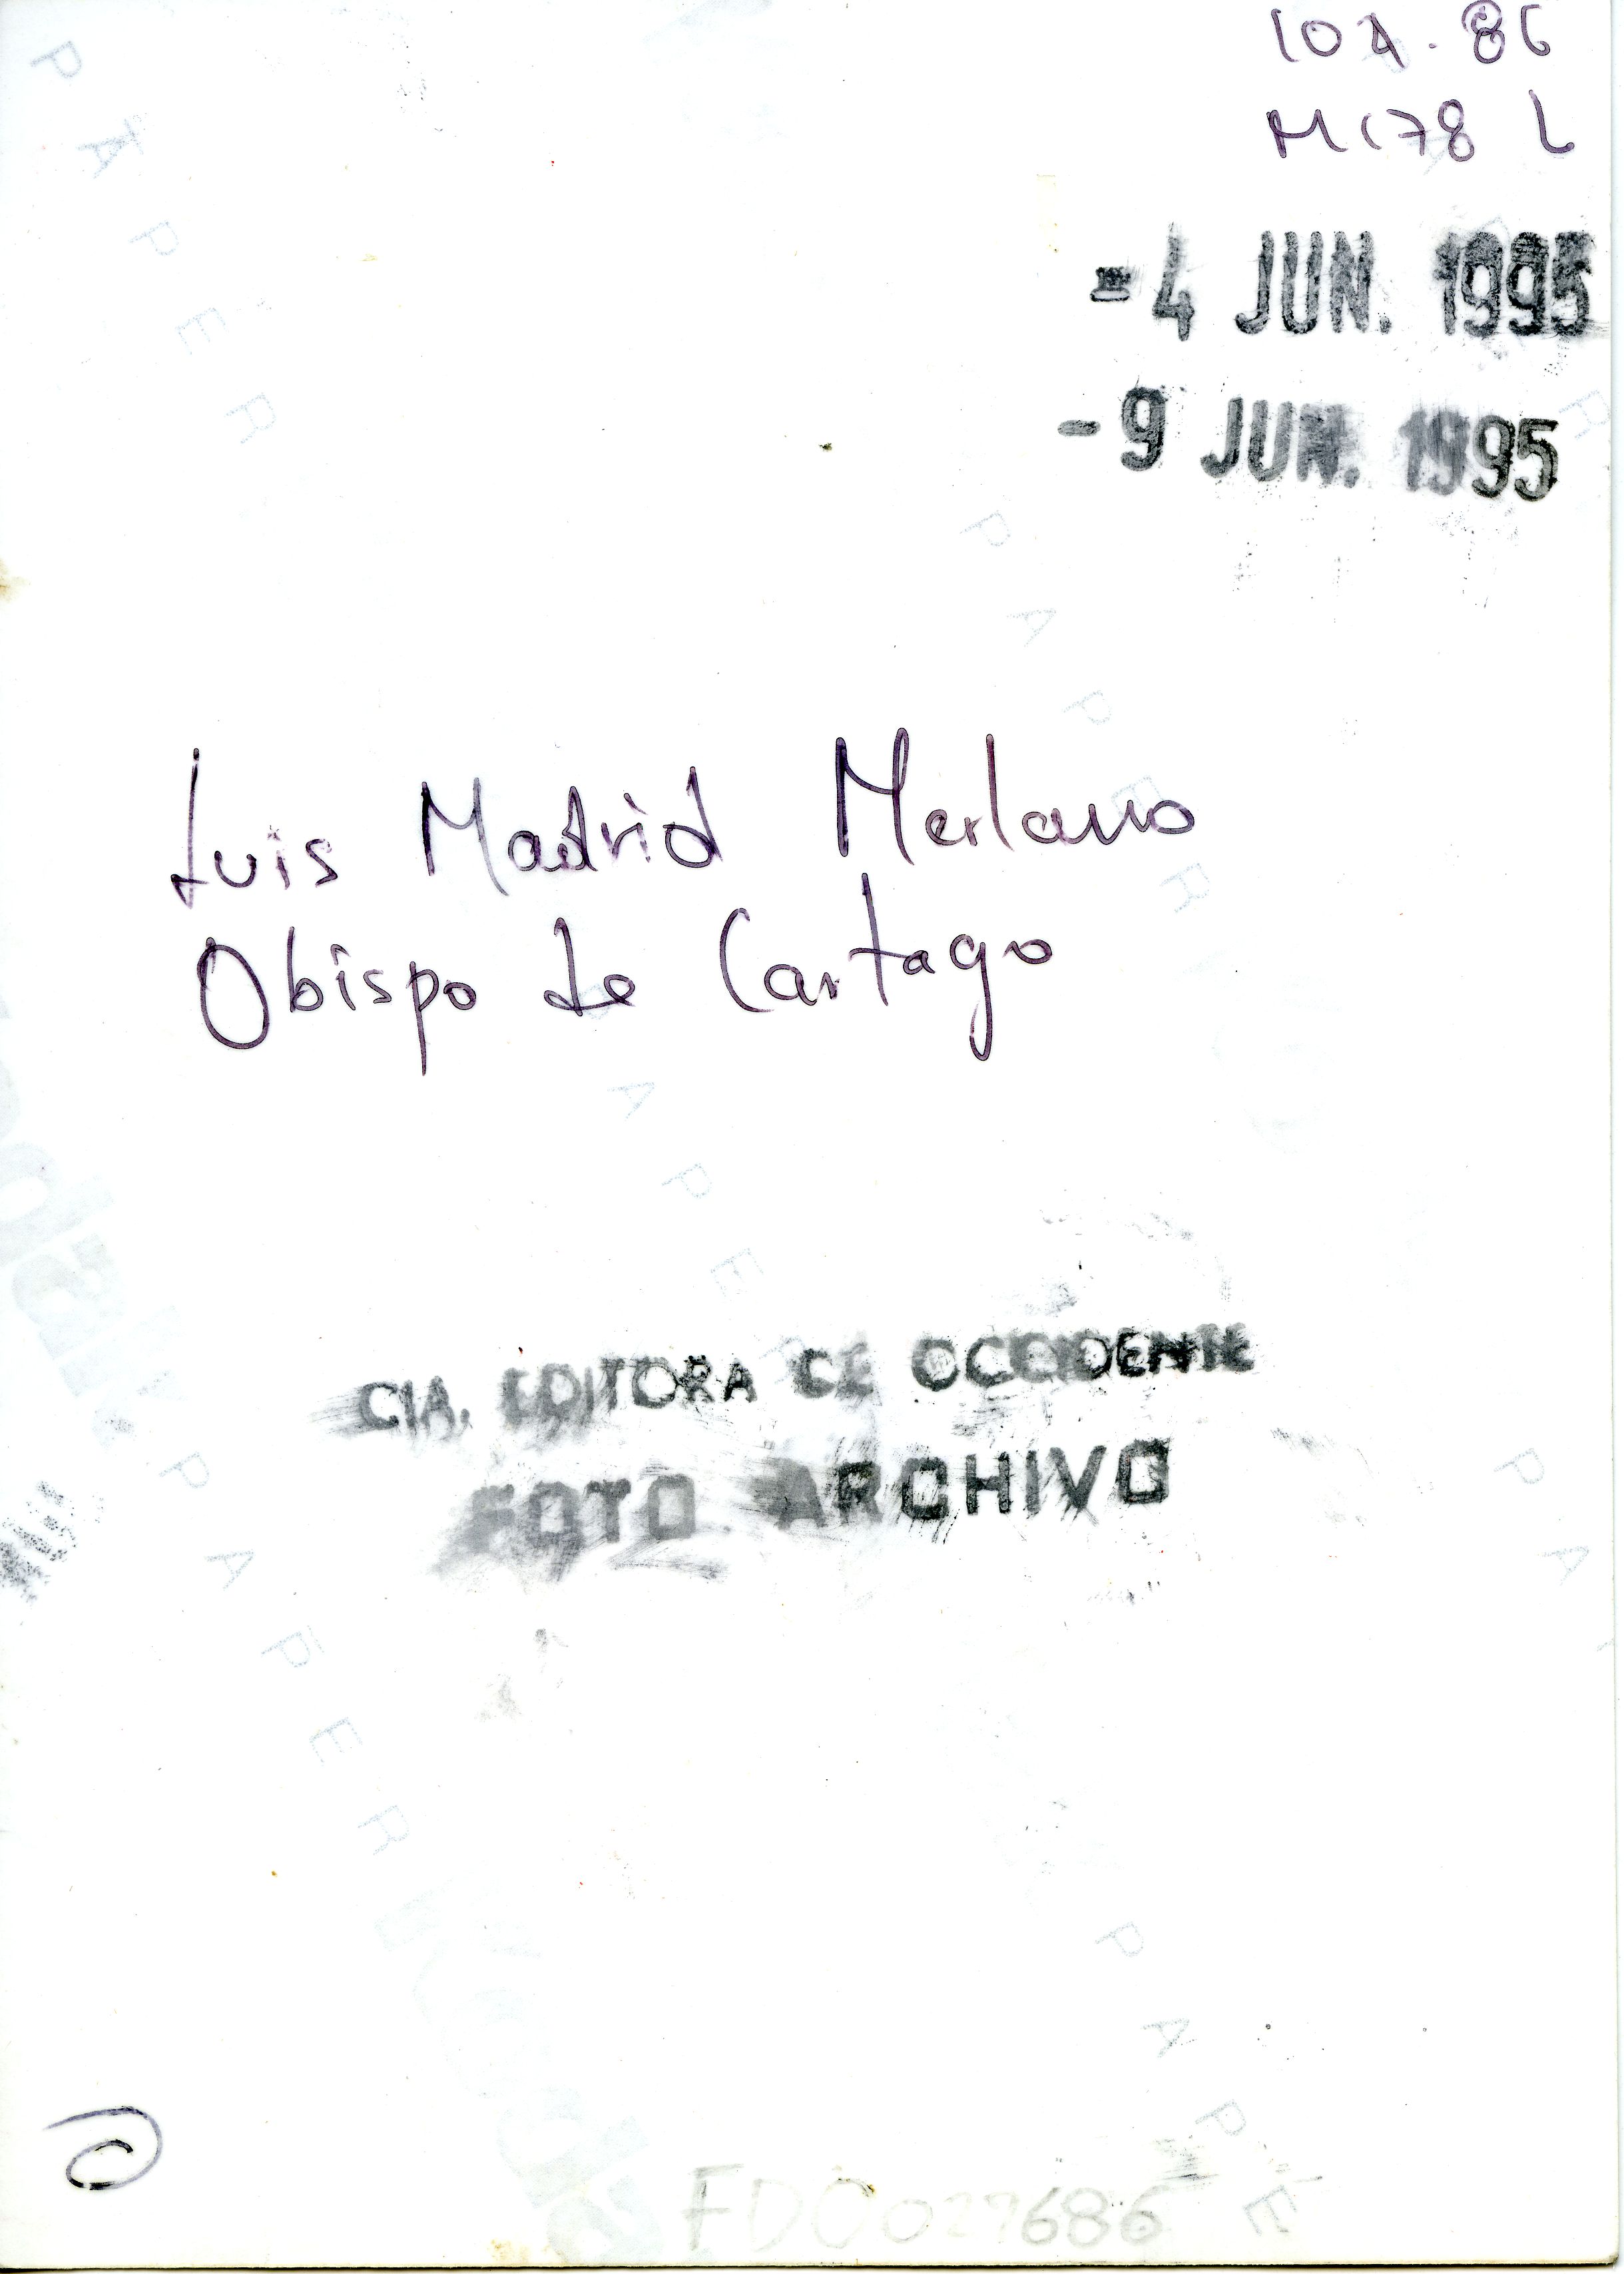 10A.86
M178 L
-4 JUN. 1995
-9 JUN. 1995
Luis Madrid Merlano
Obispo de Cartago
CIA. EDITORA DE OCCIDENTE
FOTO ARCHIVO
FDC027686
PAPER